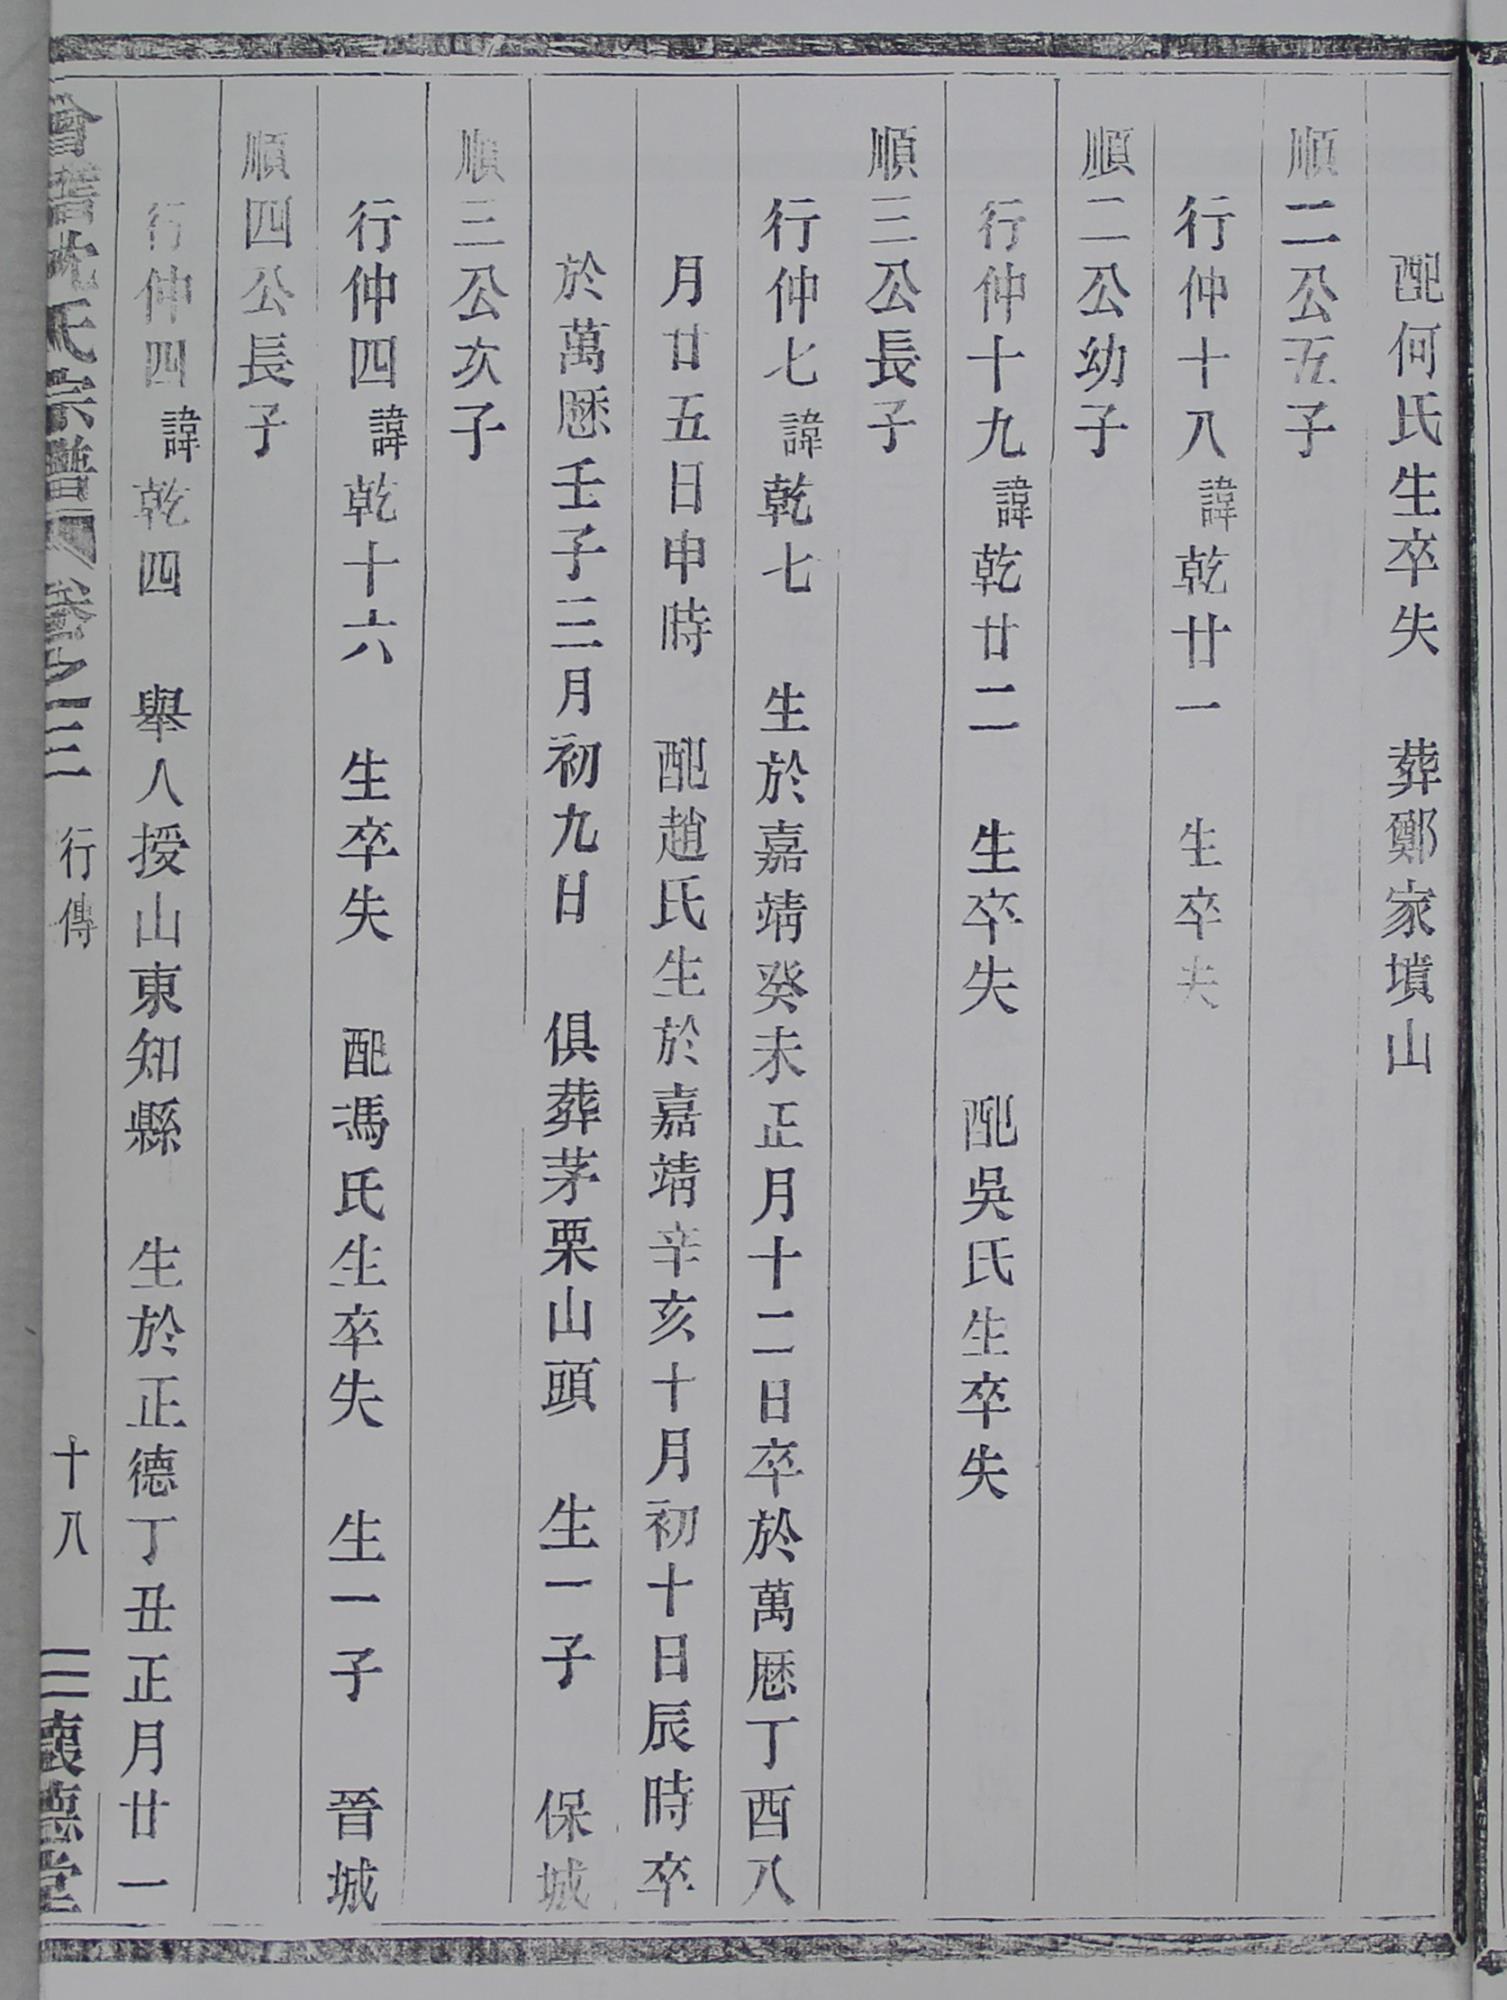 配何氏生卒失　葬鄭家墳山
順二公五子
行仲十八諱乾廿一　生卒失
順二公幼子
行仲十九諱乾廿二　生卒失　配吳氏生卒失
順三公長子
行仲七諱乾七　生於嘉靖癸未正月十二日卒於萬厯丁酉八
月廿五日申時　配趙氏生於嘉靖辛亥十月初十日辰時卒
於萬厯壬子三月初九日　俱葬茅栗山頭　生一子　保城
順三公次子
行仲四諱乾十六　生卒失　配馮氏生卒失　生一子　晉城
順四公長子
行仲四諱乾四　舉人授山東知縣　生於正德丁丑正月廿一
會稽沈氏宗譜　卷之三　行傳　十八　懷德堂